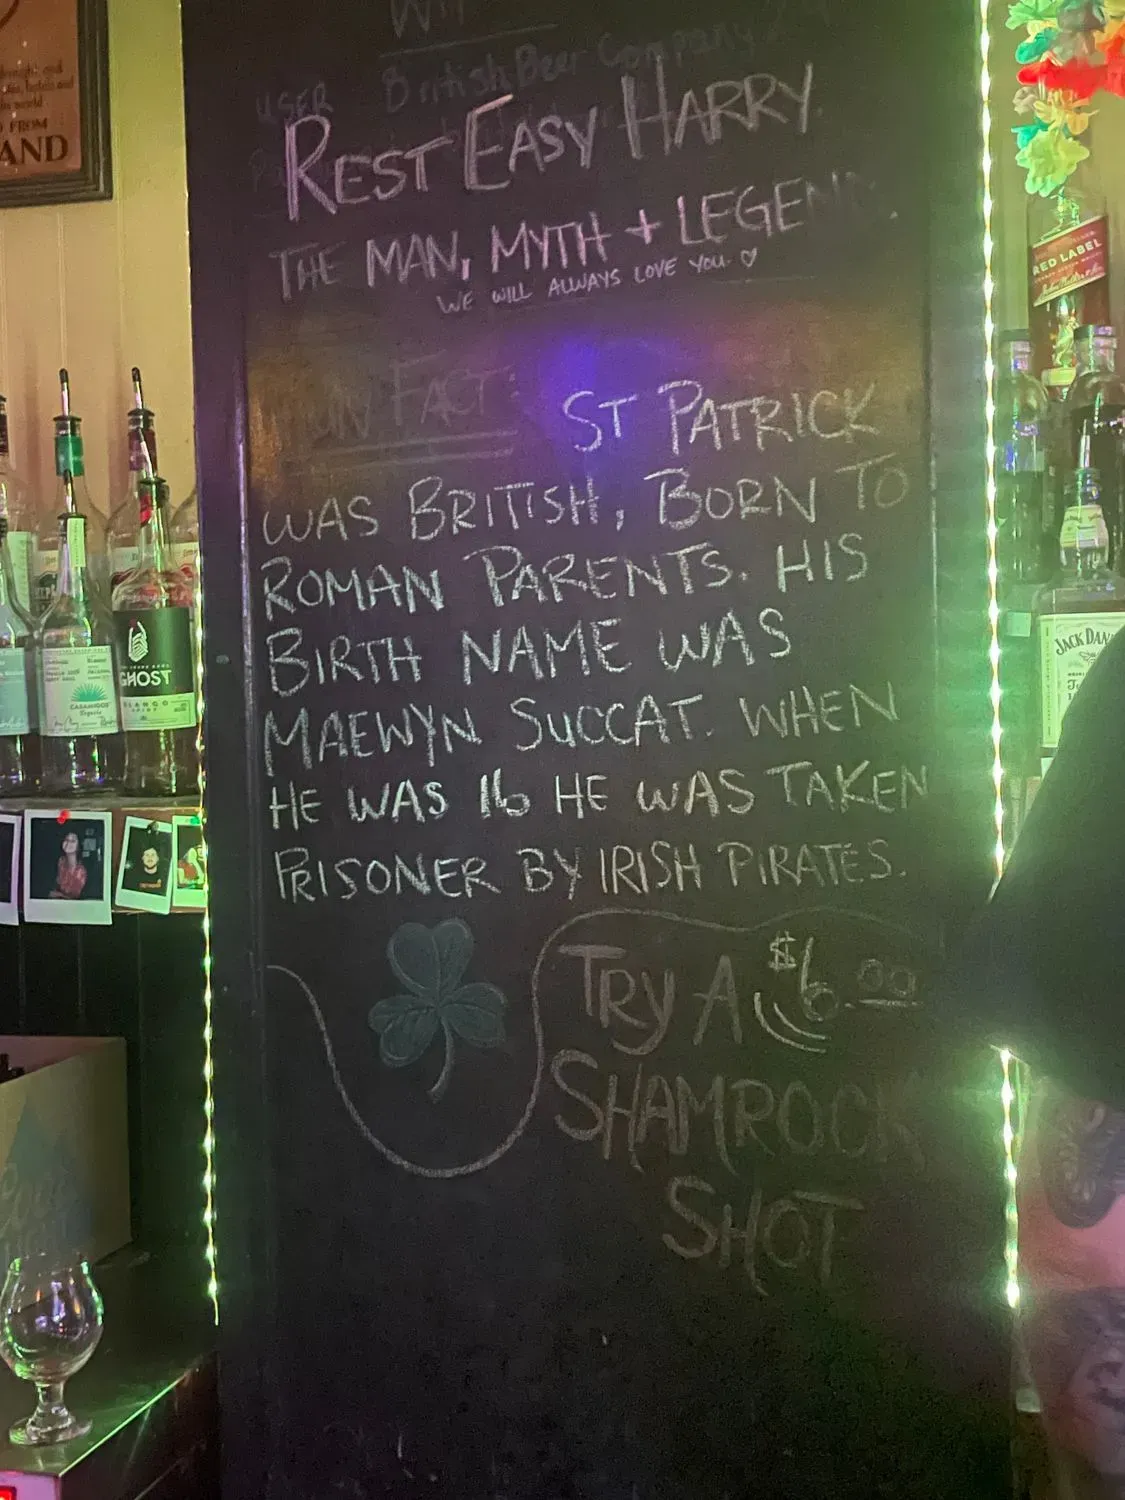 British Beer Company
USER
REST EASY HARRY.
THE MAN, MYTH + LEGEND.
WE WILL ALWAYS LOVE YOU. ♡
FUN FACT: ST PATRICK
WAS BRITISH, BORN TO
ROMAN PARENTS. HIS
BIRTH NAME WAS
MAEWYN SUCCAT. WHEN
HE WAS 16 HE WAS TAKEN
PRISONER BY IRISH PIRATES.
TRY A $6.00
SHAMROCK
SHOT
FROM
AND
RED LABEL
JACK DAN
GHOST
BLANCO
CASAMIGOS
Tequila